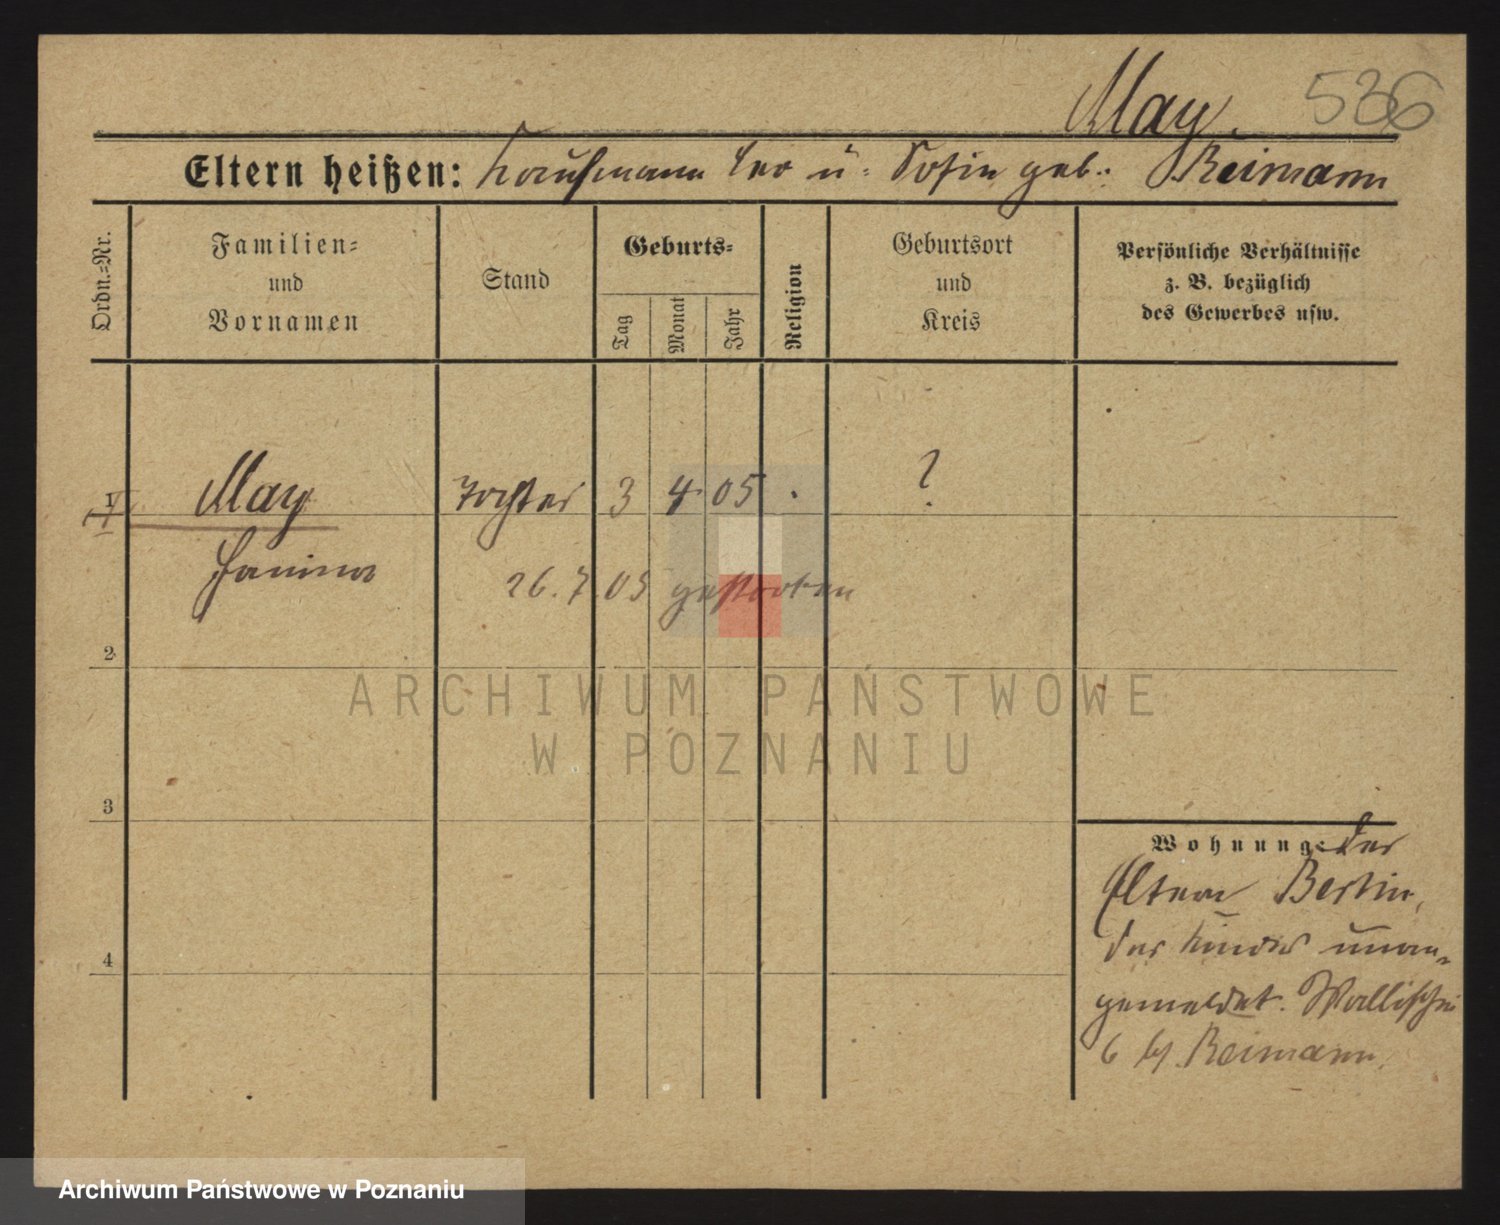 May.
536
Eltern heißen: Kaufmann Leo u. Sofie geb. Reimann
Ordn.=Nr.
Familien=
und
Vornamen
Stand
Geburts=
Tag
Monat
Jahr
Religion
Geburtsort
und
Kreis
Persönliche Verhältnisse
z. B. bezüglich
des Gewerbes usw.
1
May Tochter 3 4. 05 . ?
Janina
26. 7. 05 gestorben
2
3
4
ARCHIWUM PAŃSTWOWE
W POZNANIU
Wohnung: der
Eltern Berlin,
der Kinder unan=
gemeldet. Wallischei
6 bei Reimann.
Archiwum Państwowe w Poznaniu